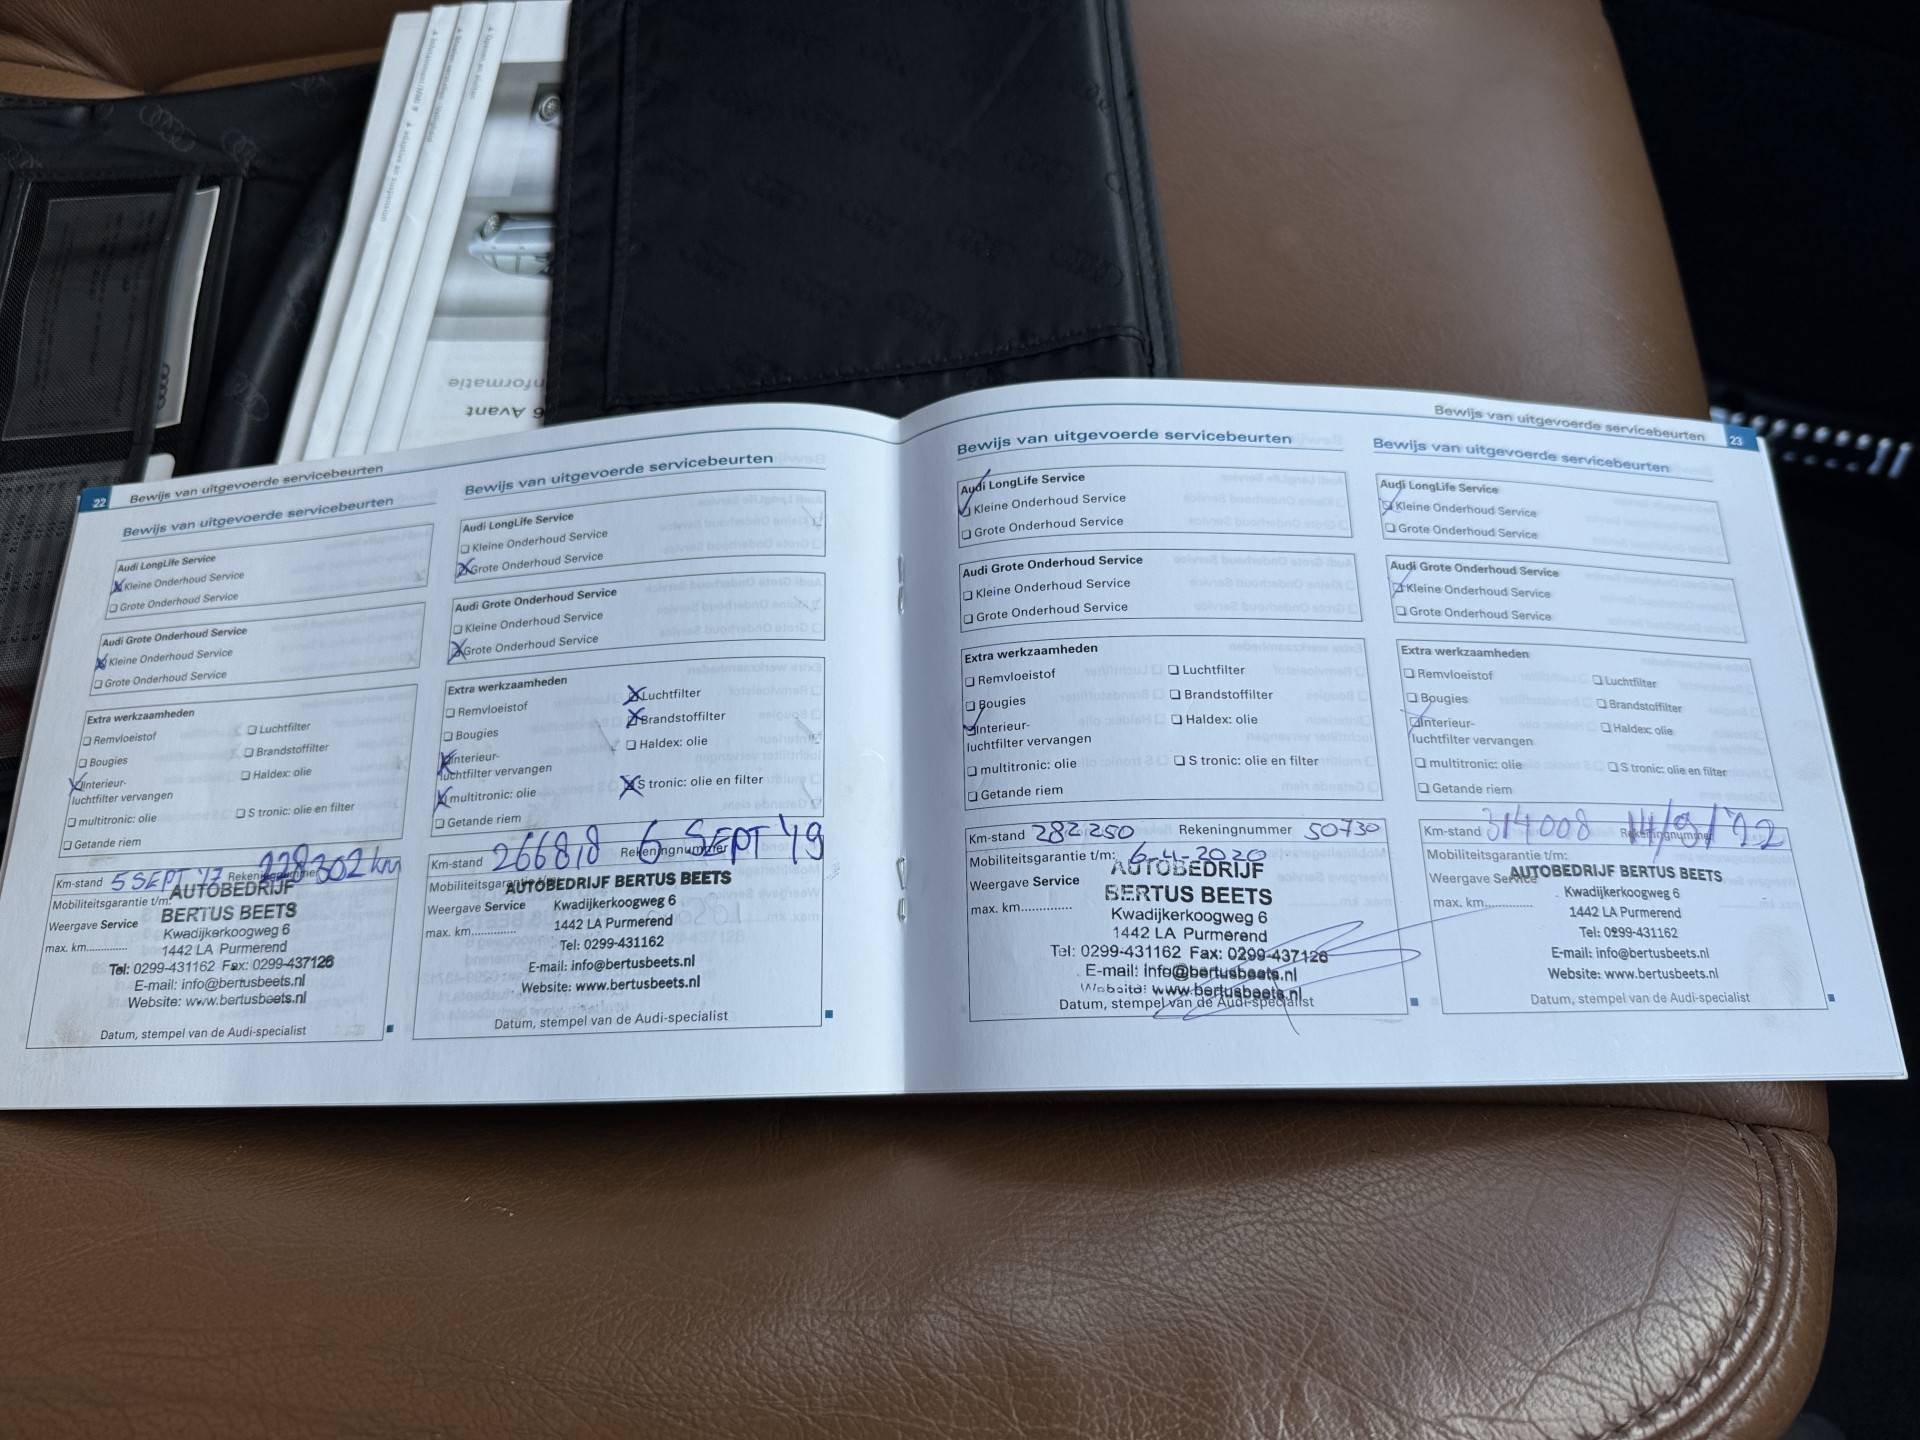 nformatie
6 Avant
22
Bewijs van uitgevoerde servicebeurten
Bewijs van uitgevoerde servicebeurten
Audi LongLife Service
Kleine Onderhoud Service
Grote Onderhoud Service
Audi Grote Onderhoud Service
Kleine Onderhoud Service
Grote Onderhoud Service
Extra werkzaamheden
Remvloeistof
Luchtfilter
Bougies
Brandstoffilter
Interieur-
luchtfilter vervangen
Haldex: olie
multitronic: olie
S tronic: olie en filter
Getande riem
Km-stand 5 SEPT '17 Rekeningnummer 228302 km
Mobiliteitsgarantie t/m:
Weergave Service
max. km.............
AUTOBEDRIJF
BERTUS BEETS
Kwadijkerkoogweg 6
1442 LA Purmerend
Tel: 0299-431162 Fax: 0299-437126
E-mail: info@bertusbeets.nl
Website: www.bertusbeets.nl
Datum, stempel van de Audi-specialist
Bewijs van uitgevoerde servicebeurten
Audi LongLife Service
Kleine Onderhoud Service
Grote Onderhoud Service
Audi Grote Onderhoud Service
Kleine Onderhoud Service
Grote Onderhoud Service
Extra werkzaamheden
Remvloeistof
Luchtfilter
Bougies
Brandstoffilter
Interieur-
luchtfilter vervangen
Haldex: olie
multitronic: olie
S tronic: olie en filter
Getande riem
Km-stand 266818 Rekeningnummer 6 SEPT '19
Mobiliteitsgarantie t/m:
Weergave Service
max. km.............
AUTOBEDRIJF BERTUS BEETS
Kwadijkerkoogweg 6
1442 LA Purmerend
Tel: 0299-431162
E-mail: info@bertusbeets.nl
Website: www.bertusbeets.nl
Datum, stempel van de Audi-specialist
Bewijs van uitgevoerde servicebeurten
23
Bewijs van uitgevoerde servicebeurten
Audi LongLife Service
Kleine Onderhoud Service
Grote Onderhoud Service
Audi Grote Onderhoud Service
Kleine Onderhoud Service
Grote Onderhoud Service
Extra werkzaamheden
Remvloeistof
Luchtfilter
Bougies
Brandstoffilter
Interieur-
luchtfilter vervangen
Haldex: olie
multitronic: olie
S tronic: olie en filter
Getande riem
Km-stand 282250 Rekeningnummer 50730
Mobiliteitsgarantie t/m: 6-4-2020
Weergave Service
max. km.............
AUTOBEDRIJF
BERTUS BEETS
Kwadijkerkoogweg 6
1442 LA Purmerend
Tel: 0299-431162 Fax: 0299-437126
E-mail: info@bertusbeets.nl
Website: www.bertusbeets.nl
Datum, stempel van de Audi-specialist
Bewijs van uitgevoerde servicebeurten
Audi LongLife Service
Kleine Onderhoud Service
Grote Onderhoud Service
Audi Grote Onderhoud Service
Kleine Onderhoud Service
Grote Onderhoud Service
Extra werkzaamheden
Remvloeistof
Luchtfilter
Bougies
Brandstoffilter
Interieur-
luchtfilter vervangen
Haldex: olie
multitronic: olie
S tronic: olie en filter
Getande riem
Km-stand 314008 Rekeningnummer 14/9/'22
Mobiliteitsgarantie t/m:
Weergave Service
max. km.............
AUTOBEDRIJF BERTUS BEETS
Kwadijkerkoogweg 6
1442 LA Purmerend
Tel: 0299-431162
E-mail: info@bertusbeets.nl
Website: www.bertusbeets.nl
Datum, stempel van de Audi-specialist